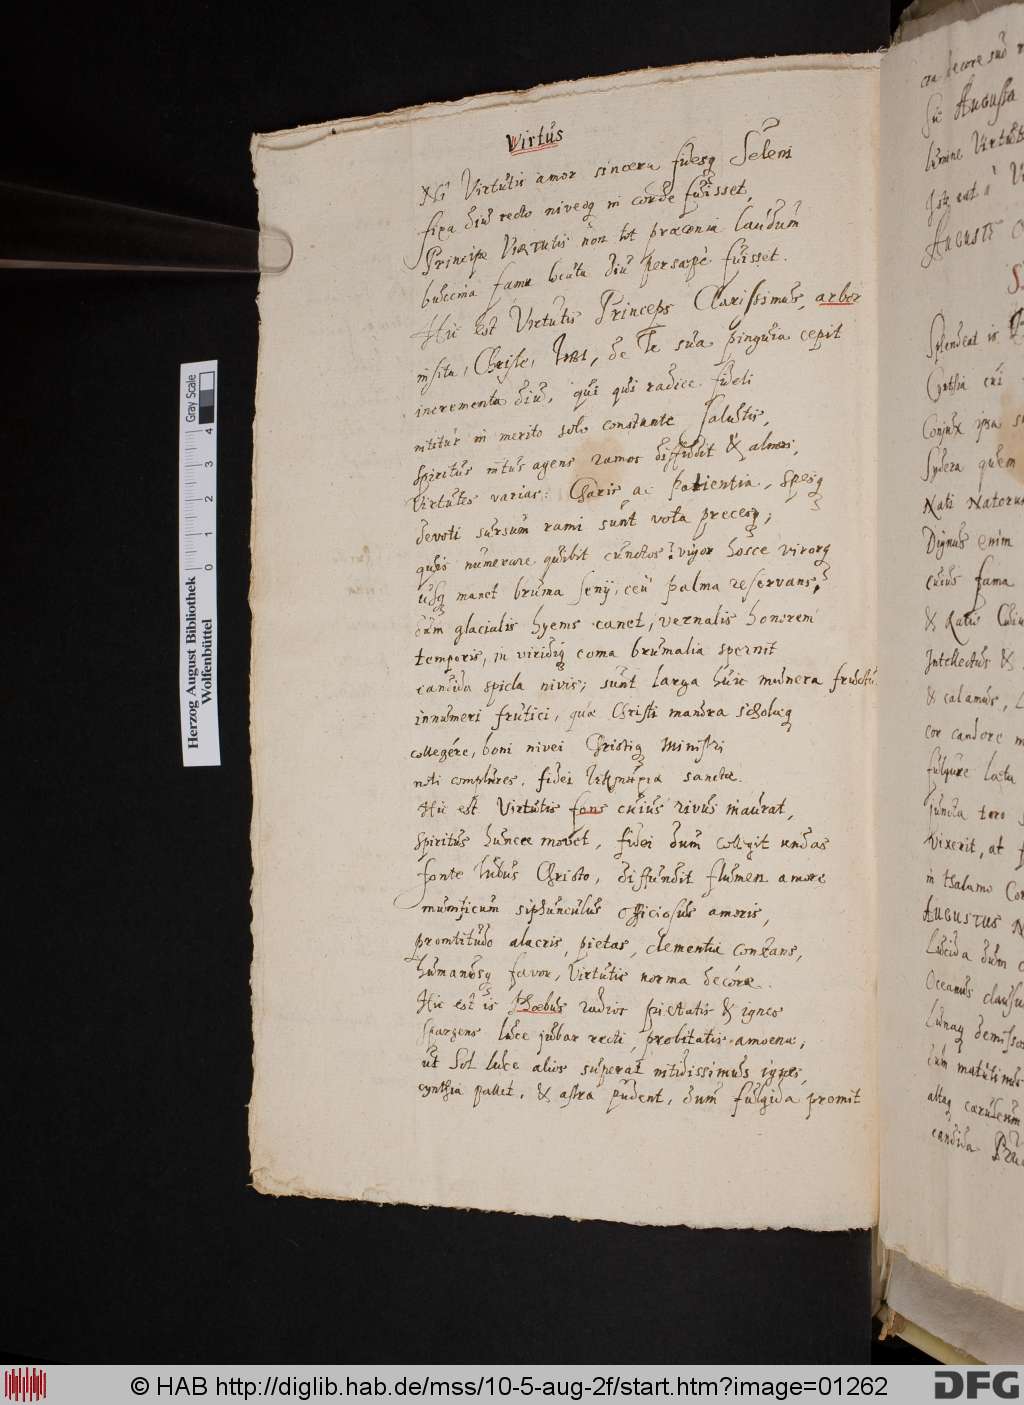 Virtus
Ni Virtutis amor sincera fidesq Seleni
fixa diu recto niveoq in corde fuisset,
Principe Virtutis non tot praeconia laudum
buccina fama locuta diu persaepè fuisset.
Hic est Virtutis Princeps Clarissimus, arbor
insita, Christe, Tibi, de Te sua pinguia cepit
incrementa diu, qui qui radice fideli
nititur in merito solo constante Salutis,
Spiritus intus agens ramos diffudit & almos,
Virtutes varias: Charis ac patientia, spesq
devoti sursum rami sunt vota precesq;
quis numerare quibit cunctos? vigor hosce virorq
usq manet bruma senij, ceu palma reservans,
dum glacialis hyems canet, vernalis honorem
temporis, in viridiq coma brumalia spernit
candida spicla nivis; sunt larga huic munera fructu
innumeri frutici, quae Christi mandra scholaeq
collegére, boni nivei Christiq Ministri
noti complures, fidei sanctae.
Hic est Virtutis fons cuius rivus inaurat,
Spiritus huncce movet, fidei dum collegit undas
fonte Christo, diffundit flumen amore
munificum siphunculus officiosus amoris,
promtitudo alacris, pietas, clementia constans,
humanusq favor, Virtutis norma decórae.
Hic est is Phoebus radios pietatis & igneos
spargens luce jubar recti, probitatis amoenae,
ut Sol luce alios superat nitidissimus ignes,
cynthia pallet, & astra pudent, dum fulgida promit
cra decore suo
Sic Augusta
lumine
Augusti
Splendeat is
Cynthia
Conjux ipsa
Sydera quem
Nati Natorum
Dignus enim
cuius fama
& Ratis
Intellectus &
& calamus,
cor candore
fulgure laeta
juncta toro
Vixerit, at
in thalamo
Augustus
Lucida dum
Oceanus clausus
Lunaq demissos
cum matutinus
altaq caruleum
candida
Herzog August Bibliothek
Wolfenbüttel
0 1 2 3 4
Gray Scale
© HAB http://diglib.hab.de/mss/10-5-aug-2f/start.htm?image=01262
DFG